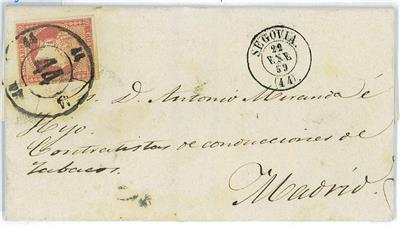 SEGOVIA.
22
ENE
59
(44)
44
44
44
S. D. Antonio Miranda é
Hijo.
Contratistas de conducciones de
tabacos.
Madrid.